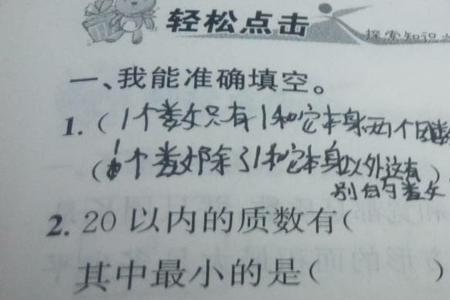 轻松点击
探索知识
一、我能准确填空。
1.(1个数只有1和它本身两个因数
(1个数除了1和它本身以外还有)
别的因数
2.20以内的质数有(
其中最小的是( )